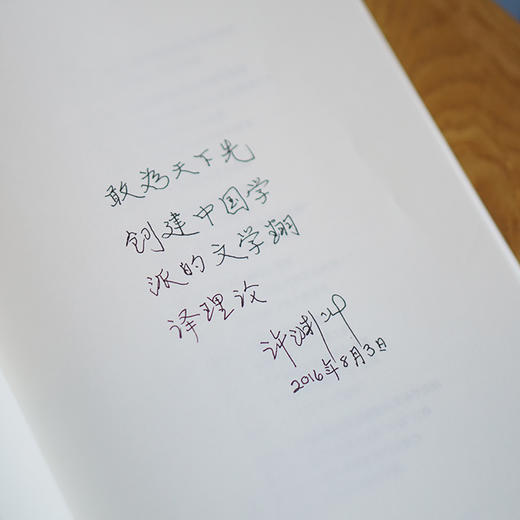 敢為天下先
创建中国学
派的文学翻
译理论
许渊冲
2016年8月3日